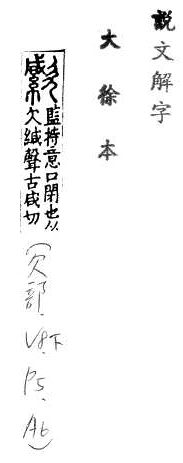 説文解字
大徐本
監持意口閉也从
欠緘聲古咸切
(欠部. V8下. P5. A6)